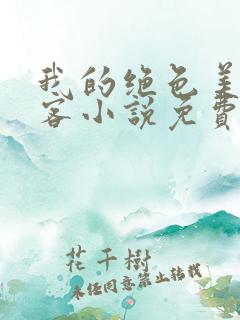 我的绝色美
客小说免费
花千樹
未经同意禁止转载